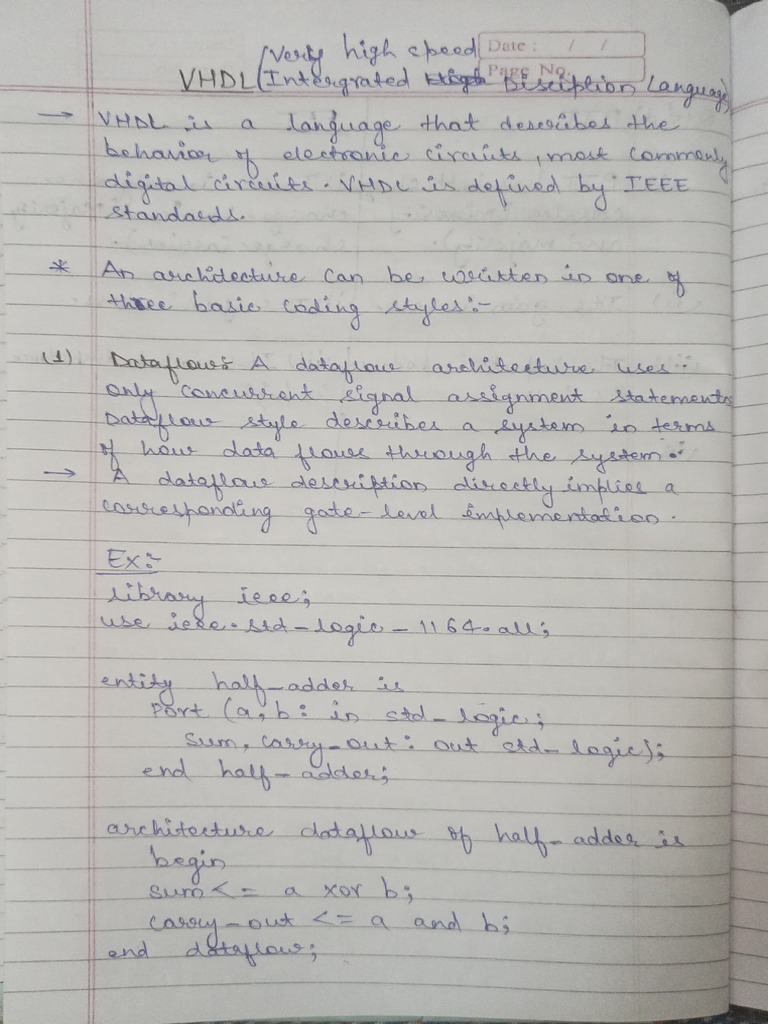 (Very high speed
Date : / /
Page No.
VHDL (Intergrated High Discription Language)
→ VHDL is a language that describes the
behavior of electronic circuits, most commonly
digital circuits. VHDL is defined by IEEE
standards.
* An architecture can be written in one of
three basic coding styles:-
(1) Dataflow: A dataflow architecture uses
only concurrent signal assignment statements
Dataflow style describes a system in terms
of how data flows through the system.
→ A dataflow description directly implies a
corresponding gate-level implementation.
Ex:-
library ieee;
use ieee.std-logic-1164.all;
entity half-adder is
Port (a, b: in std-logic;
sum, carry-out: out std-logic);
end half-adder;
architecture dataflow of half-adder is
begin
sum <= a xor b;
carry-out <= a and b;
end dataflow;